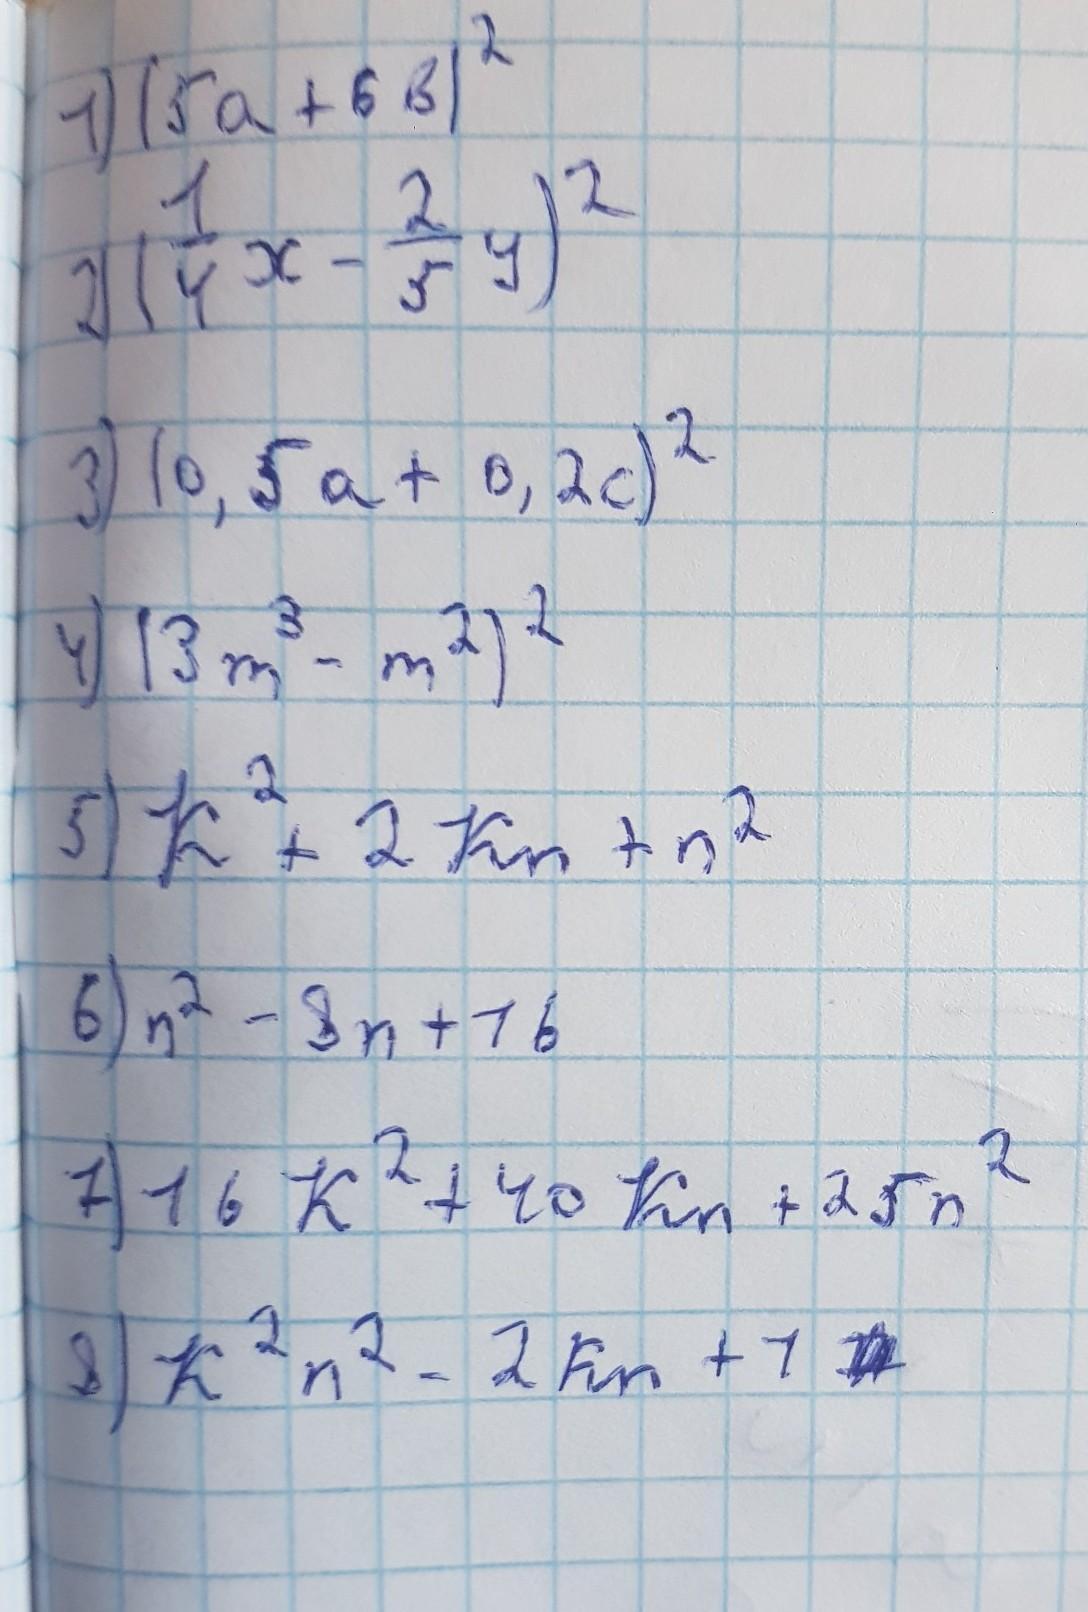 1) (5a + 6в)²
2) (1/4 x - 2/5 y)²
3) (0,5a + 0,2c)²
4) (3m³ - m²)²
5) k² + 2kn + n²
6) n² - 8n + 16
7) 16k² + 40kn + 25n²
8) k²n² - 2kn + 1